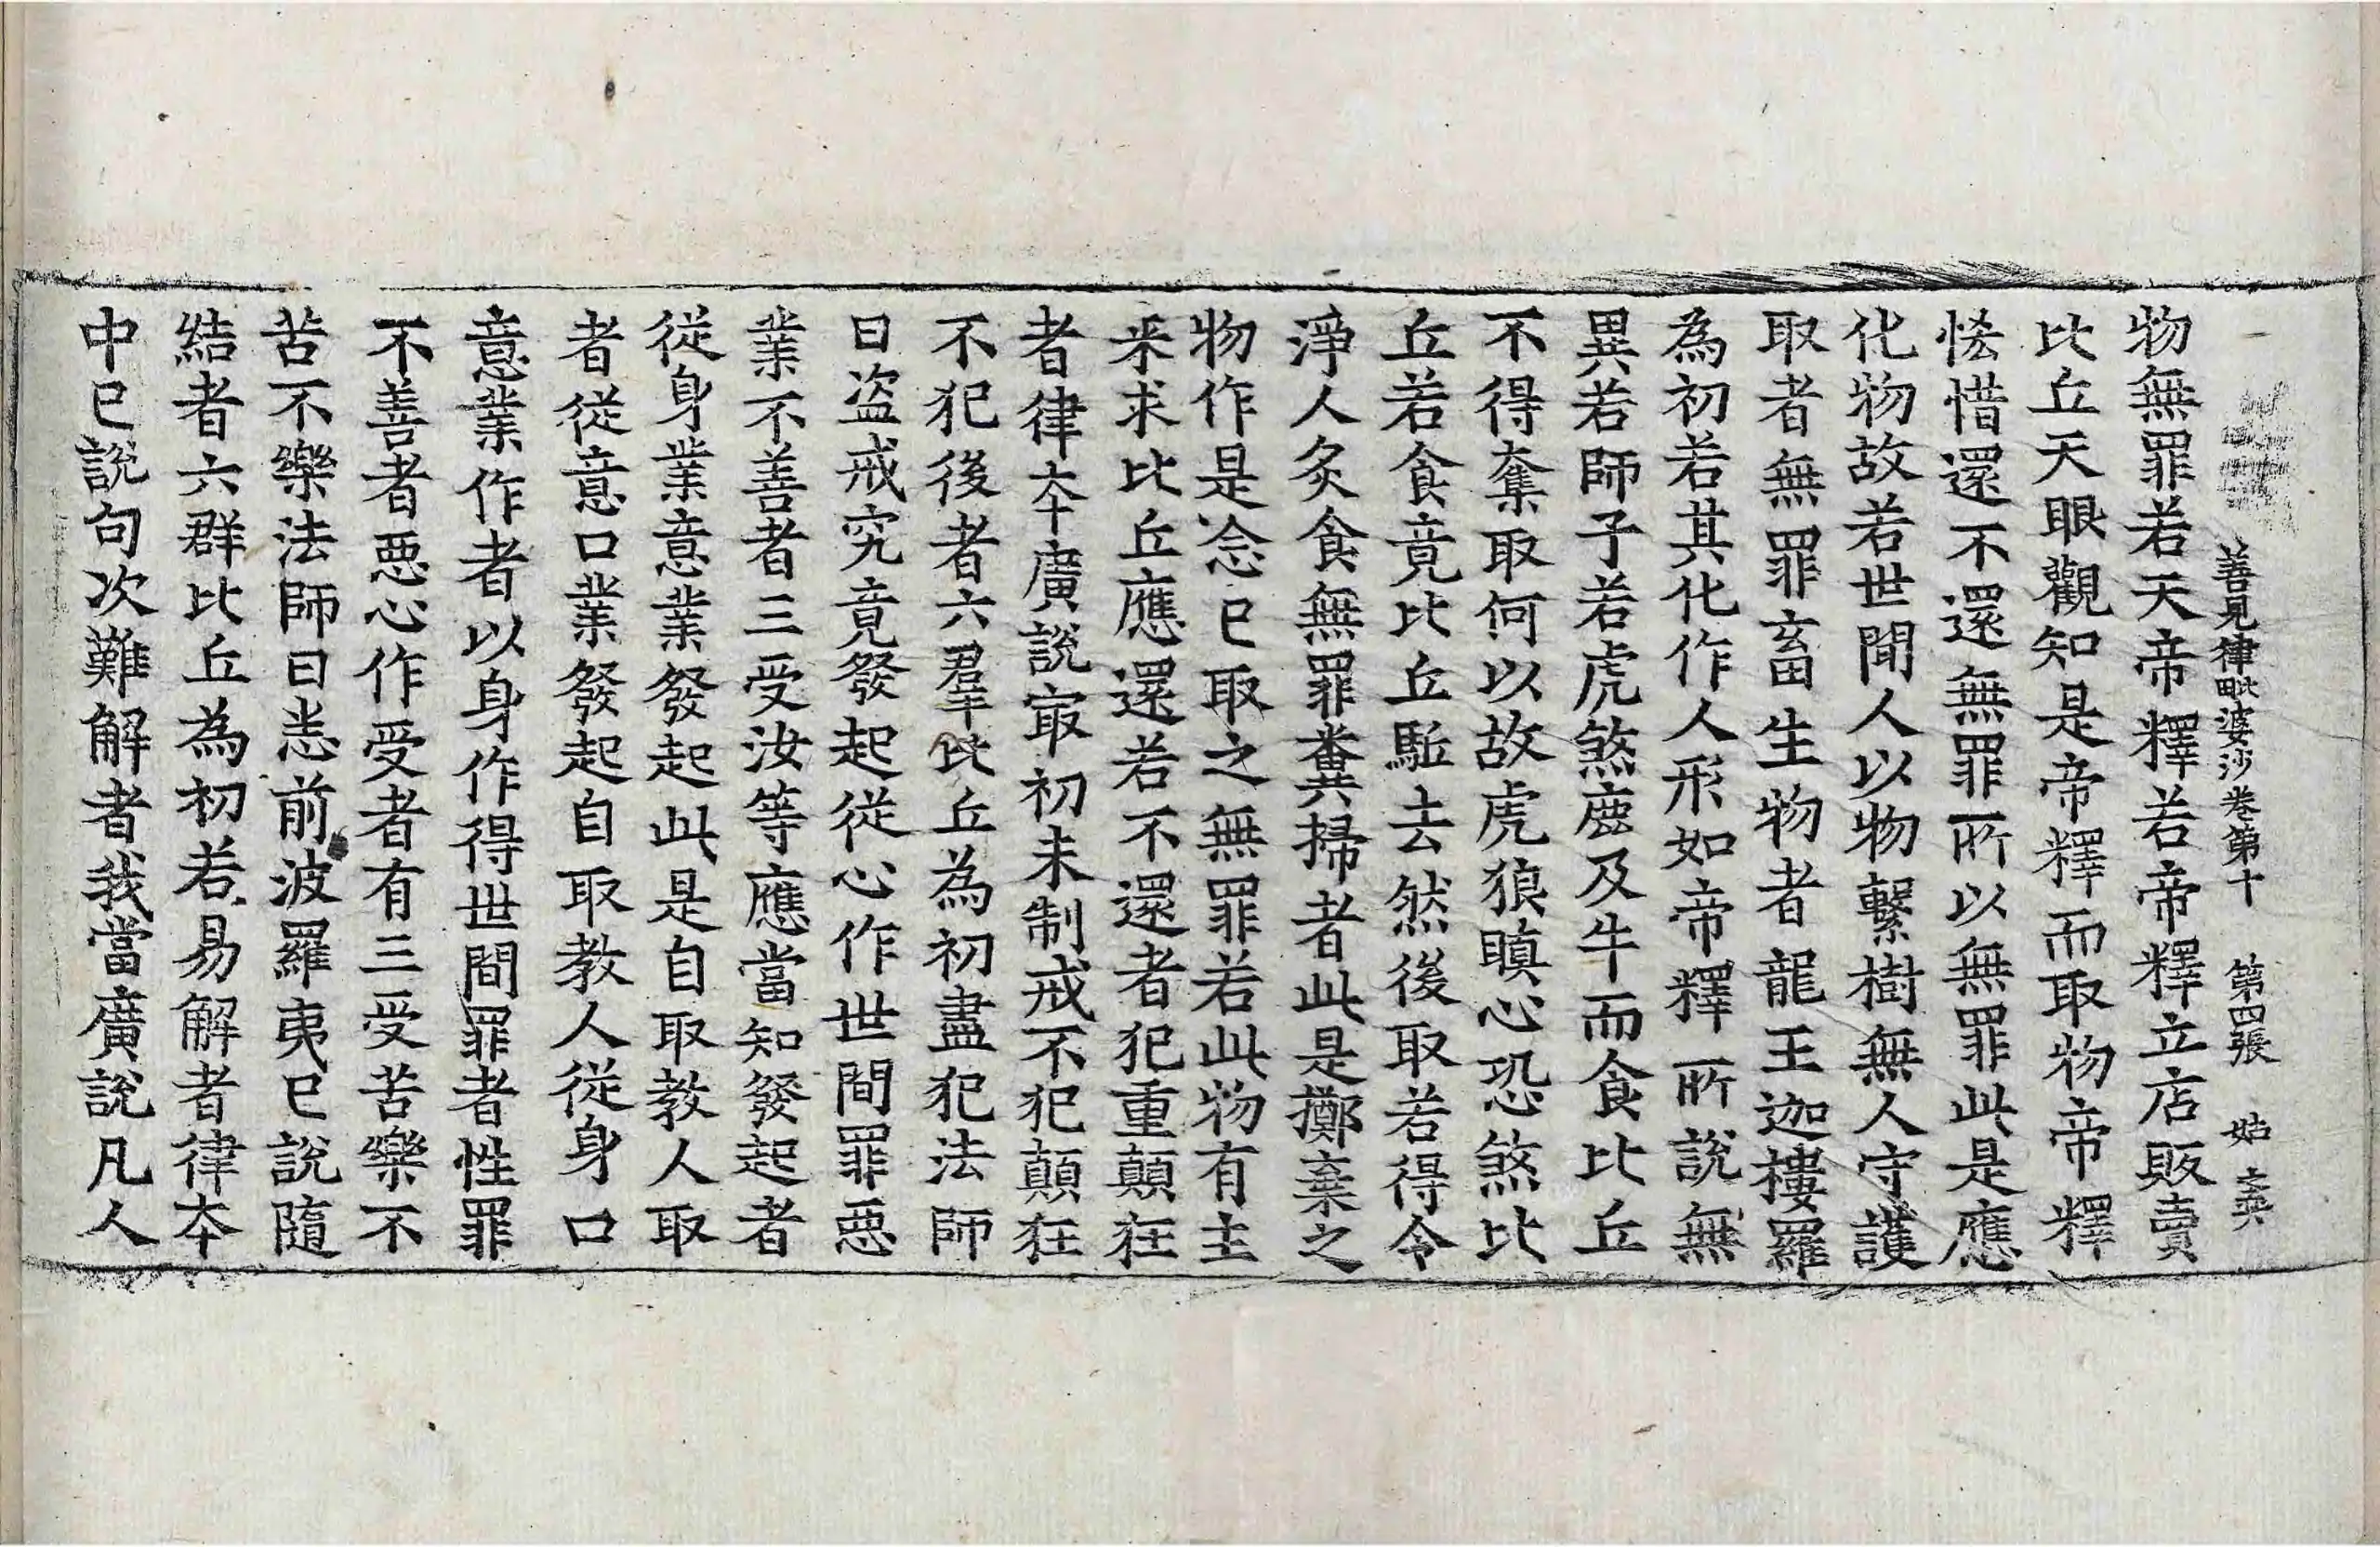 善見律毗婆沙卷第十 第四張 姑
物無罪若天帝釋若帝釋立店販賣
比丘天眼觀知是帝釋而取物帝釋
悋惜還不還無罪所以無罪此是應
化物故若世間人以物繫樹無人守護
取者無罪畜生物者龍王迦樓羅
為初若其化作人形如帝釋所說無
異若師子若虎煞鹿及牛而食比丘
不得奪取何以故虎狼瞋心恐煞比
丘若食竟比丘駈去然後取若得令
淨人炙食無罪糞掃者此是擲棄之
物作是念已取之無罪若此物有主
来求比丘應還若不還者犯重顛狂
者律夲廣說㝡初未制戒不犯顛狂
不犯後者六羣比丘為初盡犯法師
曰盜戒究竟發起從心作世間罪惡
業不善者三受汝等應當知發起者
從身業意業發起此是自取教人取
者從意口業發起自取教人從身口
意業作者以身作得世間罪者性罪
不善者惡心作受者有三受苦樂不
苦不樂法師曰恙前波羅夷已說隨
結者六群比丘為初若易解者律夲
中已說句次難解者我當廣說凡人